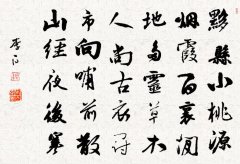 黟縣小桃源
烟霞百裏間
地多靈草木
人尚古衣冠
市向晡前散
山經夜後寒
李白